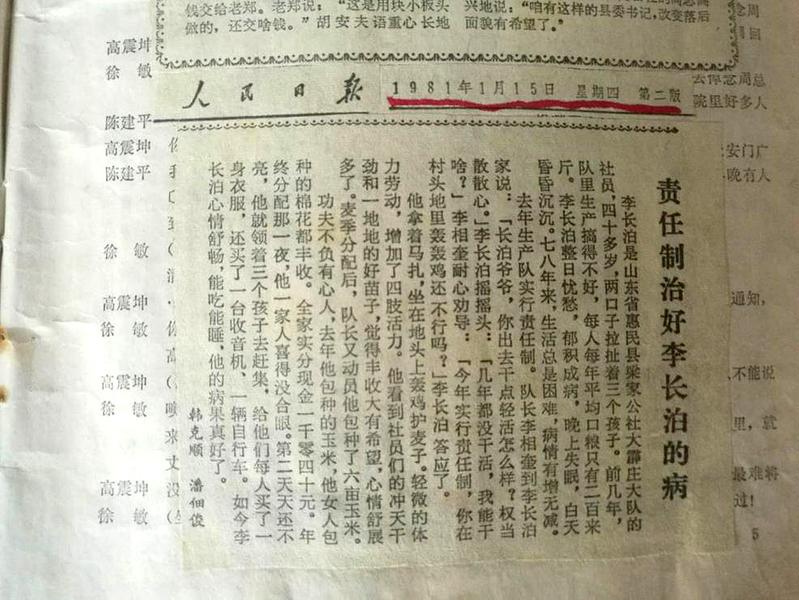 钱交给老郑。老郑说：“这是用块小板头
做的，还交啥钱。”胡安夫语重心长地
兴地说：“咱有这样的县委书记，改变落后
面貌有希望了。”
人民日报 1981年1月15日 星期四 第二版
责任制治好李长泊的病
李长泊是山东省惠民县梁家公社大霹庄大队的
社员，四十多岁，两口子拉扯着三个孩子。前几年，
队里生产搞得不好，每人每年平均口粮只有一百来
斤。李长泊整日忧愁，郁积成病，晚上失眠，白天
昏昏沉沉。七八年来，生活总是困难，病情有增无减。
去年生产队实行责任制。队长李相奎到李长泊
家说：“长泊爷爷，你出去干点轻活怎么样？权当
散散心。”李长泊摇摇头：“几年都没干活，我能干
啥？”李相奎耐心劝导：“今年实行责任制，你在
村头地里轰轰鸡还不行吗？”李长泊答应了。
他拿着马扎，坐在地头上轰鸡护麦子。轻微的体
力劳动，增加了四肢活力。他看到社员们的冲天干
劲和一地地的好苗子，觉得丰收大有希望，心情舒展
多了。麦季分配后，队长又动员他包种了六亩玉米。
功夫不负有心人，去年他包种的玉米，他女人包
种的棉花都丰收。全家实分现金一千零四十元。年
终分配那一夜，他一家人喜得没合眼。第二天天还不
亮，他就领着三个孩子去赶集，给他们每人买了一
身衣服，还买了一台收音机、一辆自行车。如今李
长泊心情舒畅，能吃能睡，他的病果真好了。
韩克顺 潘佃俊
高震坤
徐 敏
陈建平
高震坤
陈建平
徐 敏
高震坤
徐 敏
高震坤
徐 敏
高震坤
徐 敏
念周
去悼念周总
院里好多人
安门广
晚有人
通知，
不能说
里，就
最难将
过！
5